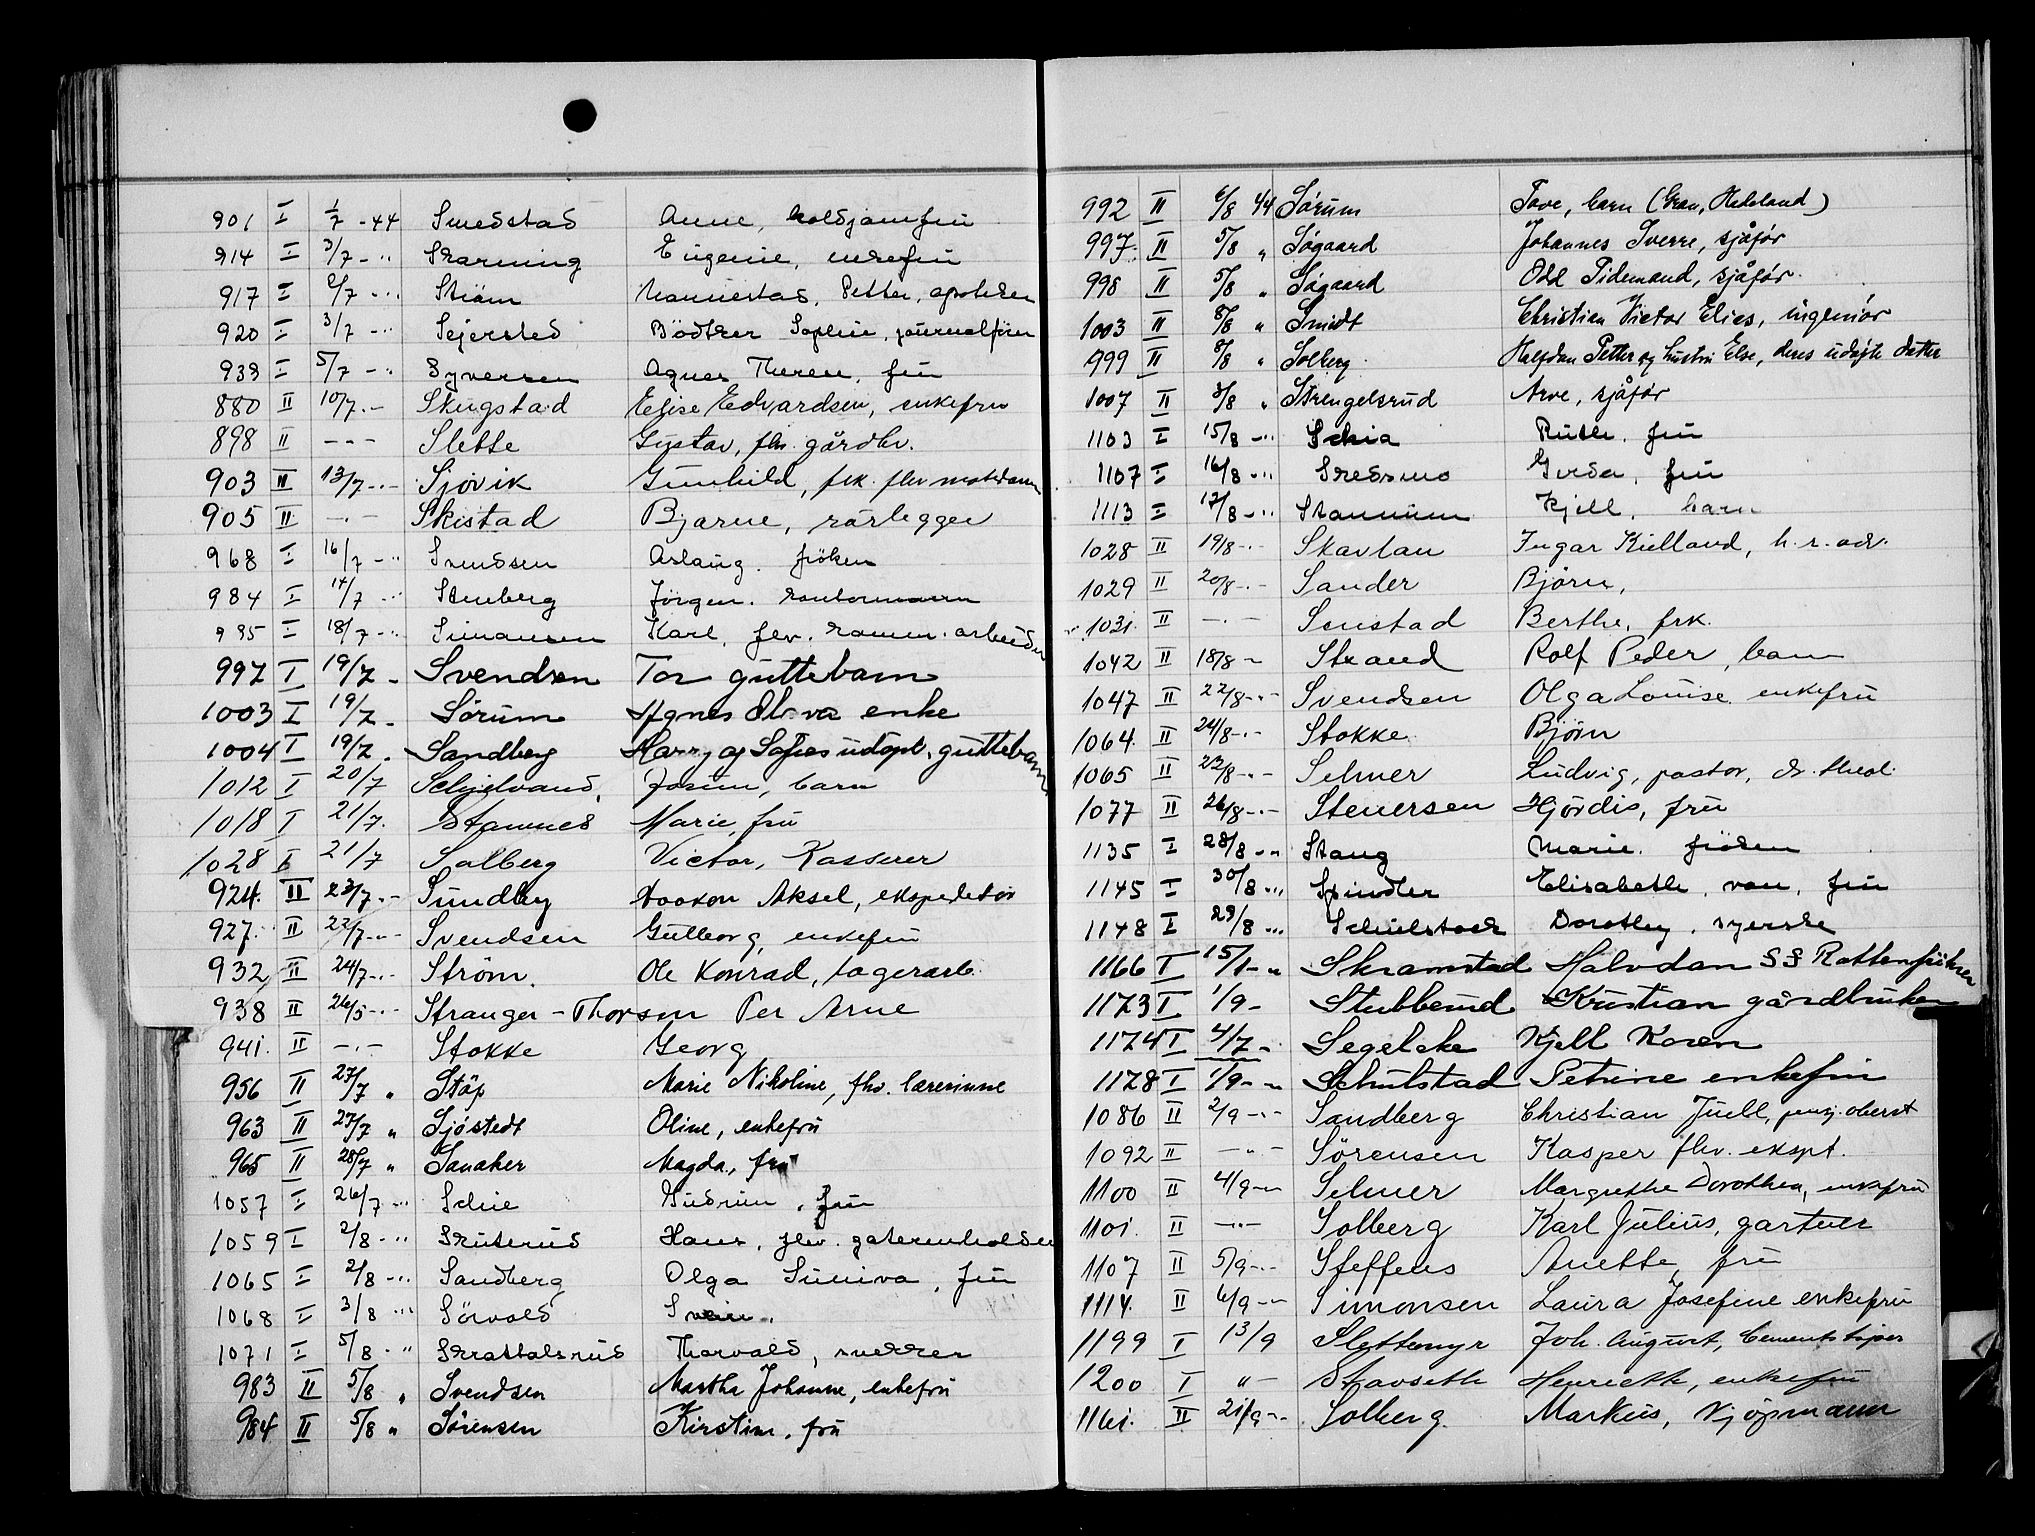 901 I 1/7 - 44 Smedstad Anne, holdsjomfru
914 I 3/7 - " Skarning Eugenie, enkefru
917 I 2/7 - " Strøm Petter, apoteker
920 I 3/7 - " Sejersted Bödtker Sophie, journalfører
938 I 5/7 - " Syversen Agnes Therese, fru
880 II 10/7 - Skugstad Elise Edvardsen, enkefru
898 II - - - Slette Gustav, fhv. gårdbr.
903 II 13/7 - Sjövik Gunhild, frk. fhv.
905 II - . - Skistad Bjarne, rørlegger
968 I 16/7 - " Svendsen Aslaug. fröken
984 I 17/7 - " Stenberg Jörgen. kontormann
985 I 18/7 - " Simonsen Karl, fhv. komm. arbeider
997 I 19/7 - Svendsen Tor guttebarn
1003 I 19/7 - Sörum Agnes Oliva enke
1004 I 19/7 . Sandberg Harry og Sofies udöpt. guttebarn
1012 I 20/7 Schjelvand, barn
1018 I 21/7. Stamnes Marie, fru
1028 I 21/7 Solberg Victor, Kasserer
924. II 23/7 - Sundby Haakon Aksel, ekspeditør
927. II 22/7 - Svendsen Gulborg, enkefru
932 II 24/7 - Ström. Ole Konrad, lagerarb.
938 II 26/5 - Stranger - Thorsen Per Arne
941. II - . - Stokke Georg
956 II 27/7 " Støp Marie Nikoline, fhv. lærerinne
963 II 27/7 " Sjøstedt Oline, enkefru
965 II 28/7 " Sanaker Magda, fru
1057 I 26/7 - " Schie Gudrun, fru
1059 I 2/8 - " Skuterud Hans, fhv. gaterenholder
1065 I 2/8 - " Sandberg Olga Suniva, fru
1068 I 3/8 - " Sörvold Svein.
1071 I 5/8 - " Skrattalsrud Thorvald, snekker
983 II 5/8 " Svendsen Martha Johanne, enkefru
984 II 5/8 " Sørensen Kirstine, fru
992 II 6/8 44 Sørum Tove, barn (Gran, Hadeland)
997. II 5/8 " Søgaard Johannes Sverre, sjåfør
998 II 5/8 " Søgaard Odd Tidemand, sjåfør.
1003 II 8/8 " Smidt Christian Victor Elias, ingeniør
999 II 8/8 " Solberg. Halfdan Petter og hustru Else, deres udøpte datter
1007 II 8/8 " Strengelsrud Arve, sjåfør
1103 I 15/8 - " Schia Ruth. fru
1107 I 16/8 - " Skedsmo Gerda, fru
1113 I 17/8 - " Kjell, barn
1028 II 19/8 - Skavlan Ingar Kielland, h.r.adv.
1029 II 20/8 - Sander Björn,
1031. II - . - Senstad Berthe, frk.
1042 II 18/8 - Strand Rolf Peder, barn
1047 II 22/8 - Svendsen Olga Louise, enkefru
1064 II 24/8 - Stokke Björn
1065 II 22/8 - Selmer Ludvig, pastor, dr. theol.
1077 II 26/8 - Stenersen Hjördis, fru
1135 I 28/8 - " Stang Marie. fröken
1145 I 30/8 - " Spindler Elisabeth, von, fru
1148 I 29/8 - " Schulstock Dorothy, syerske
1166 I 15/1 - " Skramstad Halvdan SS Rottenführer
1173 I 1/9 - Stubberud Kristian gårdbruker
1174 I 4/7 - Segelcke Kjell Koren
1178 I 1/9 - " Schulstad Petrine enkefru
1086 II 2/9 - Sandberg Christian Juell, pensj. oberst
1092 II - " - Sörensen Kasper fhv. ekspt.
1100 II 4/9 - Selmer Margrethe Dorothea, enkefru
1101. II - " - Solberg Karl Julius, gartner
1107 II 5/9 - Steffens Anette, fru
1114. II 6/9 - Simonsen Laura Josefine enkefru
1199 I 13/9 Slettemyr Joh. August,
1200 I " - Stavseth Henriette, enkefru
1161. II 21/9 - Solberg. Markus, kjøpmann